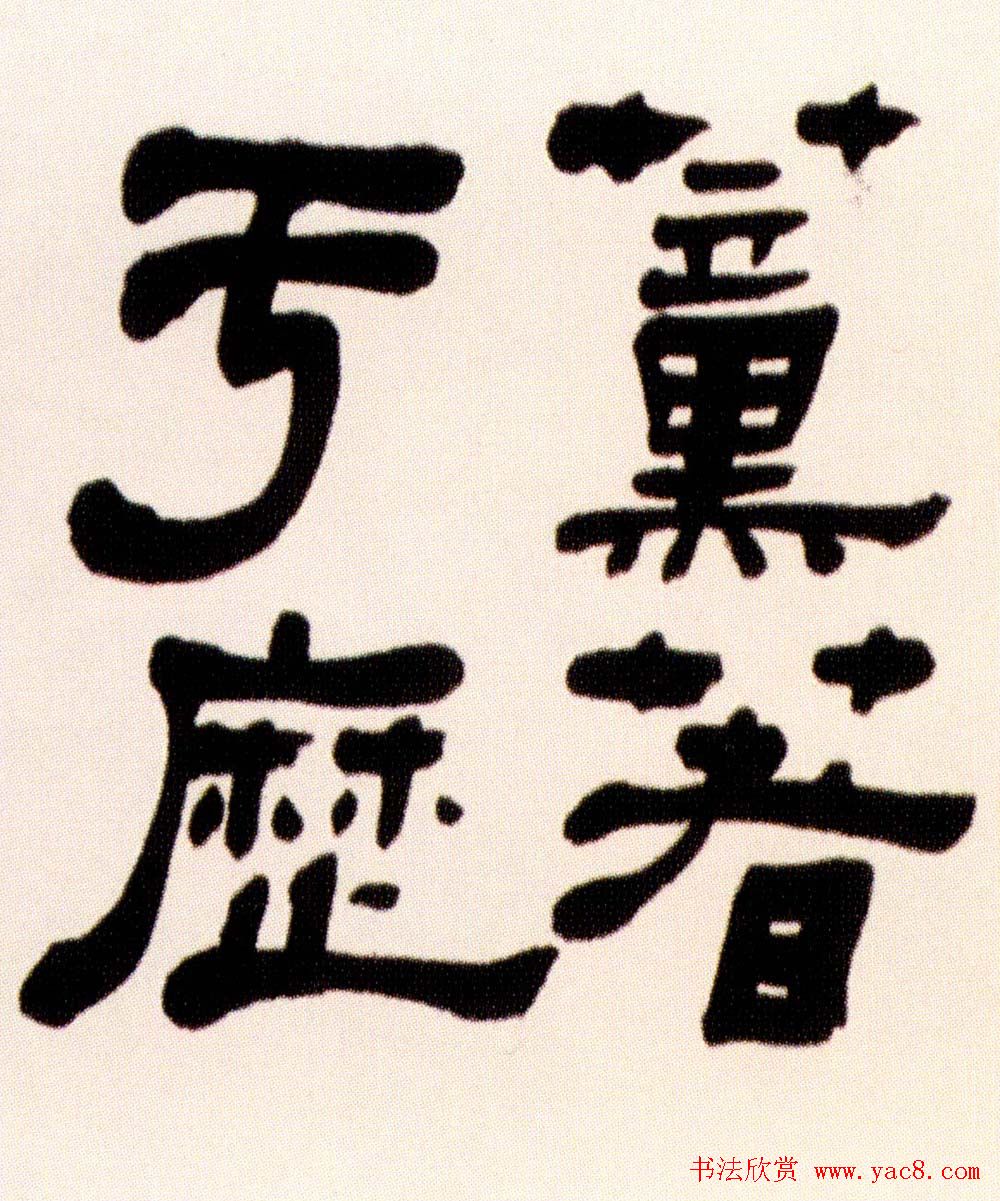 薰著
于歷
书法欣赏 www.yac8.com